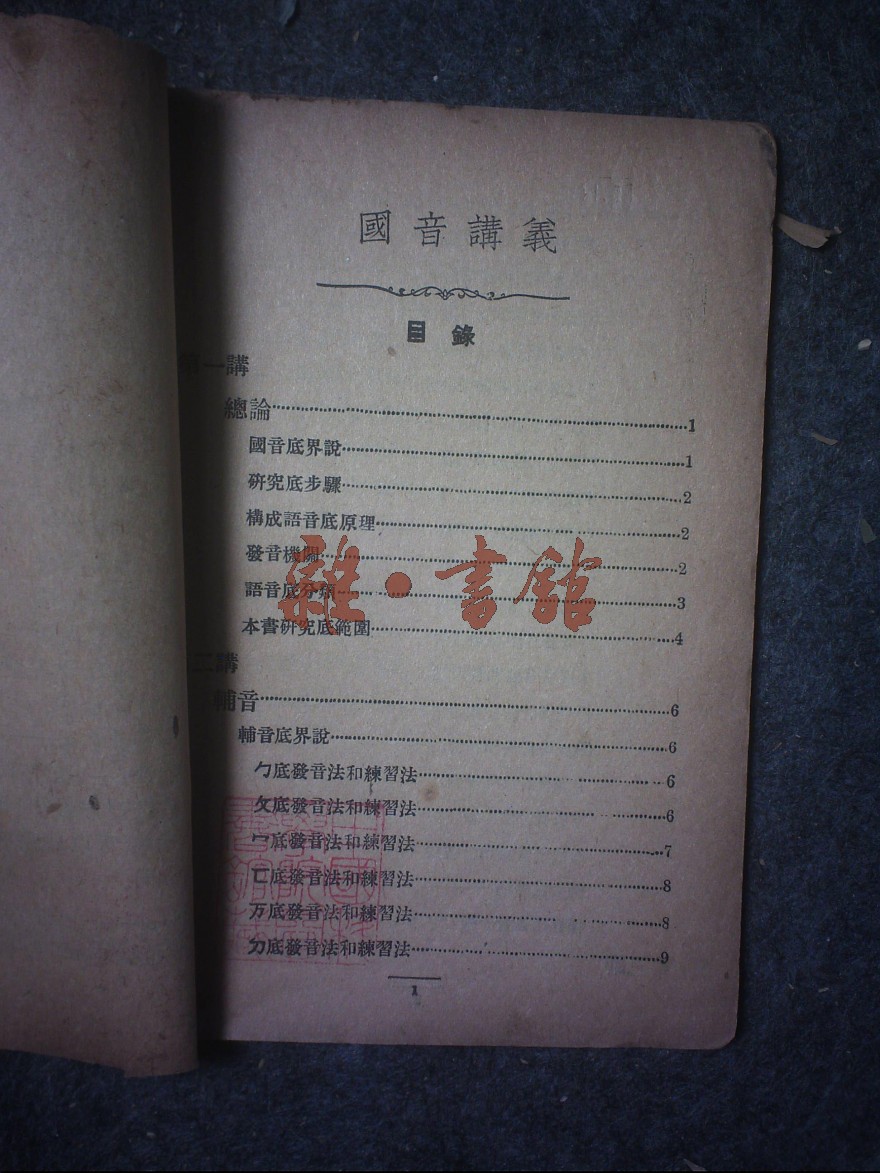 國音講義
目錄
第一講
總論 1
國音底界說 1
研究底步驟 2
構成語音底原理 2
發音機關 2
語音底分類 3
本書研究底範圍 4
二講
輔音 6
輔音底界說 6
ㄅ底發音法和練習法 6
ㄆ底發音法和練習法 6
ㄇ底發音法和練習法 7
ㄈ底發音法和練習法 8
万底發音法和練習法 8
ㄉ底發音法和練習法 9
1
雜·書館